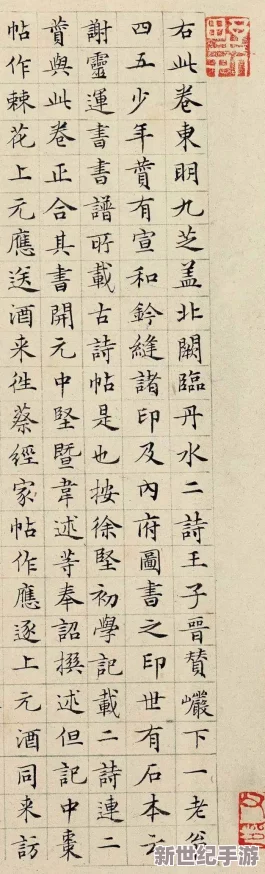 右此卷東明九芝盖北闕臨丹水二詩王子晋賛巗下一老翁
四五少年賛有宣和鈐縫諸印及内府圖書之印世有石本云
謝靈運書書譜所載古詩帖是也按徐堅初學記載二詩連二
賛與此卷正合其書開元中堅暨韋述等奉詔撰述但記中棗
帖作棘花上元應送酒来徃蔡經家帖作應逐上元酒同来訪
新世纪手游